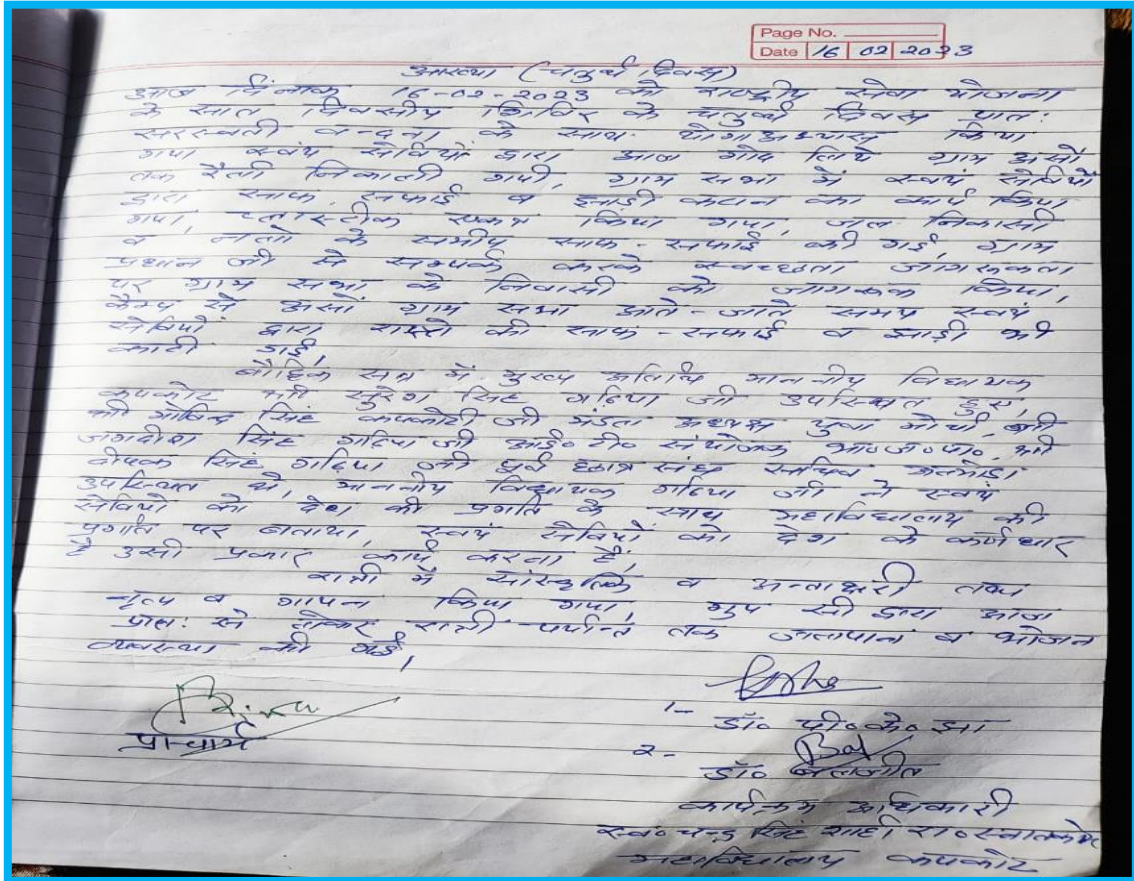 Page No.
Date 16 02 2023
आख्या (चतुर्थ दिवस)
आज दिनांक 16-02-2023 को राष्ट्रीय सेवा योजना
के सात दिवसीय शिविर के चतुर्थ दिवस प्रातः
सरस्वती वन्दना के साथ योगाअभ्यास किया
गया स्वंय सेवियों द्वारा आज गोद लिये ग्राम असों
तक रैली निकाली गयी, ग्राम सभा में स्वयं सेवियों
द्वारा साफ सफाई व झाड़ी कटान का कार्य किया
गया, प्लास्टीक एकत्र किया गया, जल निकासी
व नलों के समीप साफ-सफाई की गई, ग्राम
प्रधान जी से सम्पर्क करके स्वच्छता जागरूकता
पर ग्राम सभा के निवासी को जागरूक किया,
कैम्प से असों ग्राम सभा आते-जाते समय स्वयं
सेवियों द्वारा रास्ते की साफ-सफाई व झाड़ी भी
काटी गई,
बौद्धिक सत्र में मुख्य अतिथि माननीय विधायक
कपकोट श्री सुरेश सिंह गढ़िया जी उपस्थित हुए,
श्री गोविन्द सिंह कपकोटी जी मंडल अध्यक्ष युवा मोर्चा, श्री
जगदीश सिंह गढ़िया जी आई० टी० संयोजक भा०ज०पा०, श्री
दीपक सिंह गढ़िया जी पूर्व छात्र संघ सचिव अल्मोड़ा
उपस्थित थे, माननीय विधायक गढ़िया जी ने स्वयं
सेवियों को देश की प्रगति के साथ महाविद्यालय की
प्रगति पर बताया, स्वयं सेवियों को देश के कर्णधार
है उसी प्रकार कार्य करना है,
रात्री में सांस्कृतिक व अन्ताक्षरी तथा
नृत्य व गायन किया गया, ग्रुप सी द्वारा आज
प्रातः से लेकर रात्री पर्यान्त तक जलपान व भोजन
व्यवस्था की गई,
1- डॉ० पी०के० झा
प्राचार्य
2- डॉ० बलजीत
कार्यक्रम अधिकारी
स्व० चन्द्र सिंह शाही रा० स्नातको०
महाविद्यालय कपकोट